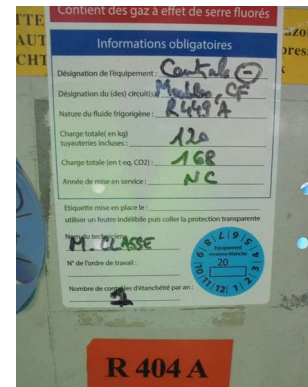 Contient des gaz à effet de serre fluorés
Informations obligatoires
Désignation de l'équipement : Centrale ⊖
Désignation du (des) circuit(s) Meubles CF
Nature du fluide frigorigène : R449A
Charge totale( en kg)
tuyauteries incluses : 120
Charge totale (en t eq. CO2) : 168
Année de mise en service : NC
Etiquette mise en place le :
utiliser un feutre indélébile puis coller la protection transparente
Nom du technicien :
M. CLASSE
N° de l'ordre de travail :
Nombre de contrôles d'étanchéité par an :
Equipement
reconnu étanche
20
1 2 3 4 5 6 7 8 9 10 11 12
R 404 A